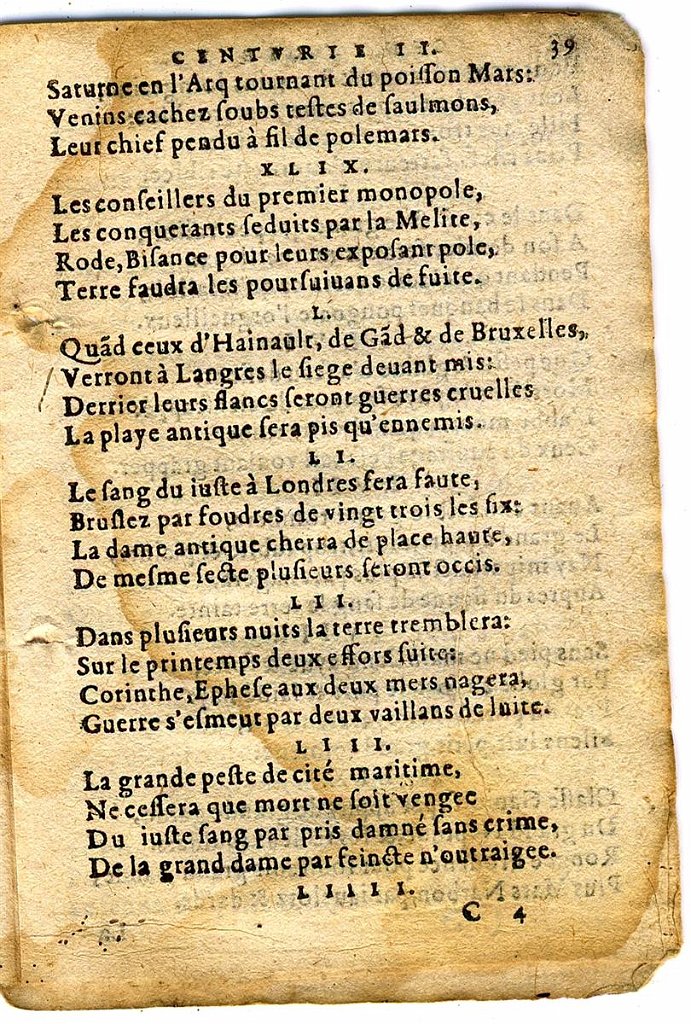 CENTVRIE II. 39
Saturne en l'Arq tournant du poiſſon Mars:
Venins cachez ſoubs teſtes de ſaulmons,
Leur chief pendu à fil de polemars.
XLIX.
Les conſeillers du premier monopole,
Les conquerants ſeduits par la Melite,
Rode, Biſance pour leurs expoſant pole,
Terre faudra les pourſuiuans de fuite.
L.
Quãd ceux d'Hainault, de Gãd & de Bruxelles,
Verront à Langres le ſiege deuant mis:
Derrier leurs flancs ſeront guerres cruelles
La playe antique ſera pis qu'ennemis.
LI.
Le ſang du iuſte à Londres fera faute,
Bruſlez par foudres de vingt trois les ſix:
La dame antique cherra de place haute,
De meſme ſecte pluſieurs ſeront occis.
LII.
Dans pluſieurs nuits la terre tremblera:
Sur le printemps deux effors ſuite:
Corinthe, Epheſe aux deux mers nagera,
Guerre s'eſmeut par deux vaillans de luite.
LIII.
La grande peſte de cité maritime,
Ne ceſſera que mort ne ſoit vengee
Du iuſte ſang par pris damné ſans crime,
De la grand dame par feincte n'outraigee.
LIIII.
C 4